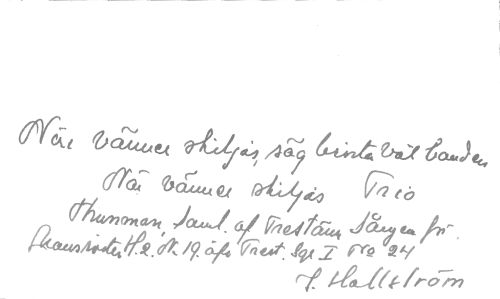 När vänner skiljas, säg brista väl banden
När vänner skiljas Trio
Thunman, Saml. af Trestäm. Sånger för
H. 2, N. 19. Trest. Sgr I No 24
J. Hallström